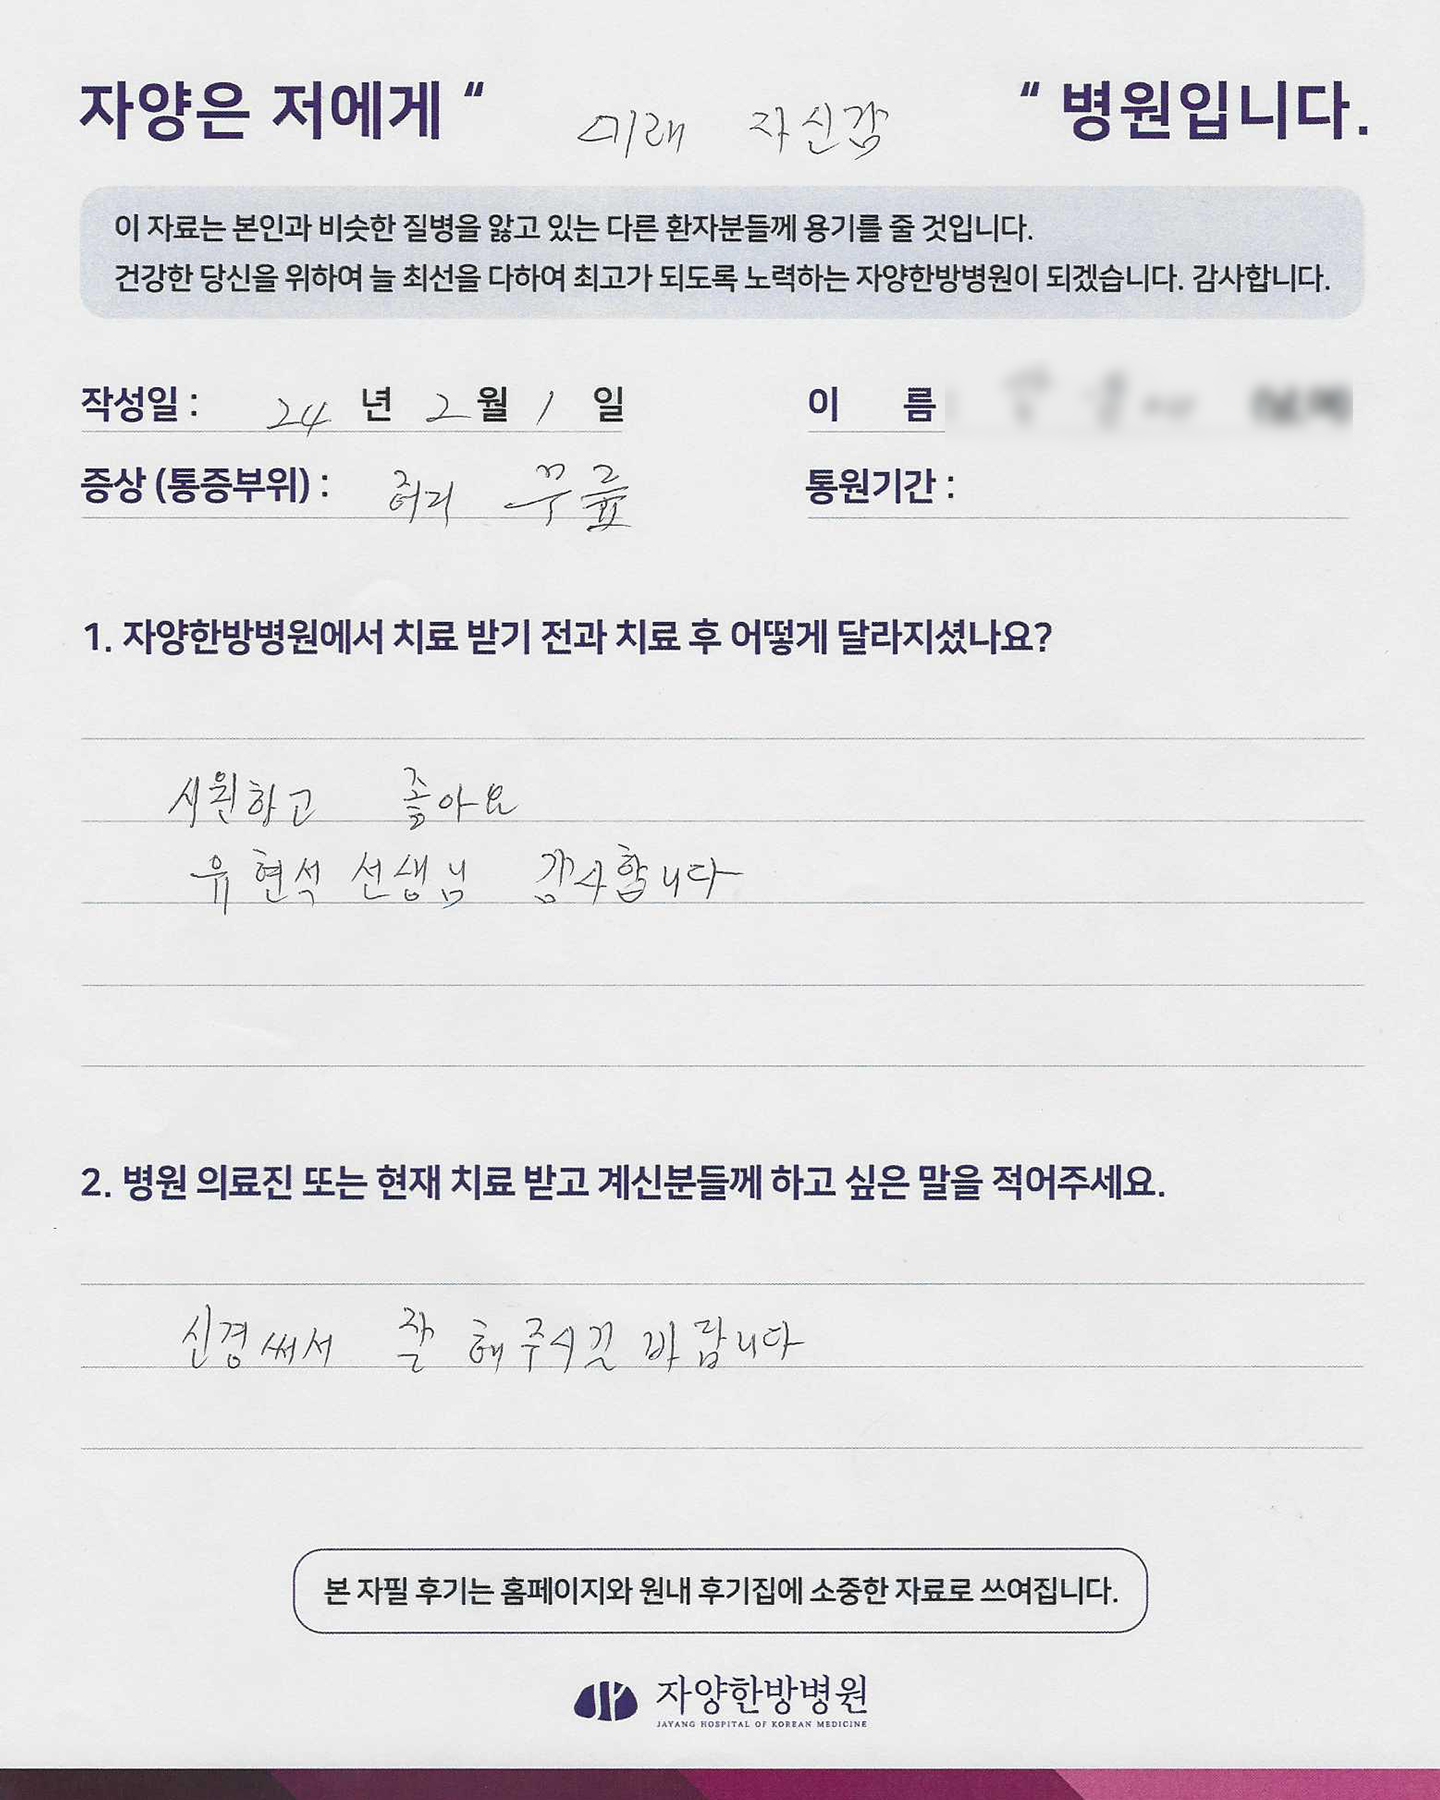 자양은 저에게 “ 미래 자신감 “ 병원입니다.
이 자료는 본인과 비슷한 질병을 앓고 있는 다른 환자분들께 용기를 줄 것입니다.
건강한 당신을 위하여 늘 최선을 다하여 최고가 되도록 노력하는 자양한방병원이 되겠습니다. 감사합니다.
작성일 : 24 년 2 월 1 일 이 름
증상 (통증부위) : 허리 무릎 통원기간 :
1. 자양한방병원에서 치료 받기 전과 치료 후 어떻게 달라지셨나요?
시원하고 좋아요
유현석 선생님 감사합니다
2. 병원 의료진 또는 현재 치료 받고 계신분들께 하고 싶은 말을 적어주세요.
신경써서 잘 해주시길 바랍니다
본 자필 후기는 홈페이지와 원내 후기집에 소중한 자료로 쓰여집니다.
자양한방병원
JAYANG HOSPITAL OF KOREAN MEDICINE